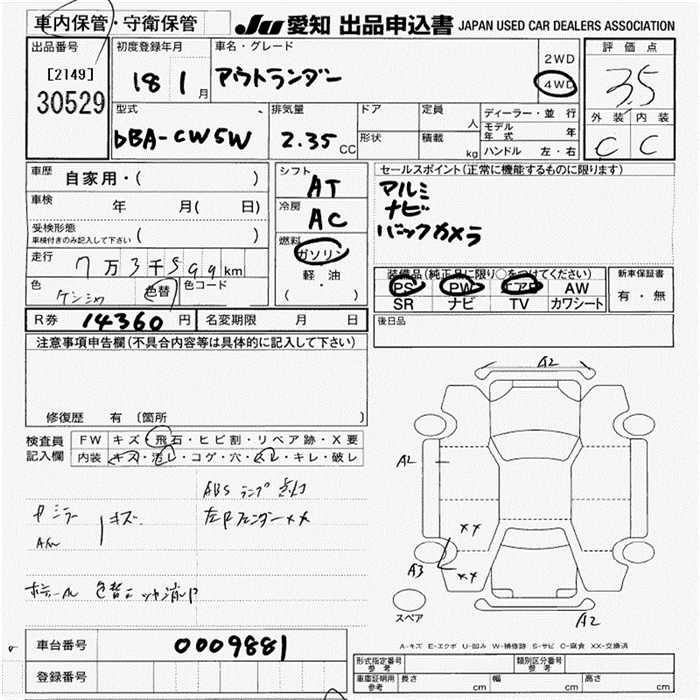 車内保管・守衛保管
JU 愛知 出品申込書 JAPAN USED CAR DEALERS ASSOCIATION
出品番号
[2149]
30529
初度登録年月
18 1 月
車名・グレード
アウトランダー
2WD
4WD
評価点
3.5
外装 内装
C C
型式
DBA-CW5W
排気量
2.35 CC
ドア
形状
定員
人
積載
kg
ディーラー・並行
モデル年式 年
ハンドル 左・右
車歴 自家用・( )
車検 年 月( 日)
受検形態
車検付きのみ記入して下さい ( )
走行 7万3千599km
色 色替 色コード
シフト
AT
冷房
AC
燃料
ガソリン
軽・油
( )
セールスポイント(正常に機能するものに限ります)
アルミ
ナビ
バックカメラ
装備品(純正品に限り○をつけてください)
PS PW エアB AW
SR ナビ TV カワシート
新車保証書
有・無
R券 14360 円 名変期限 月 日
後日品
注意事項申告欄(不具合内容等は具体的に記入して下さい)
修復歴 有 〔箇所 〕
検査員
記入欄
FW キズ・飛石・ヒビ割・リペア跡・X要
内装 キズ・汚レ・コゲ・穴・スレ・キレ・破レ
ABS ランプ 点灯
キズ
左Fフェンダー××
A2
A2
××
A3
××
スペア
A2
A-キズ E-エクボ U-凹み W-補修跡 S-サビ C-腐食 XX-交換済
車台番号 0009881
登録番号
形式指定番号
参考
類別区分番号
参考
車庫証明用
参考
長さ cm 幅 cm 高さ cm